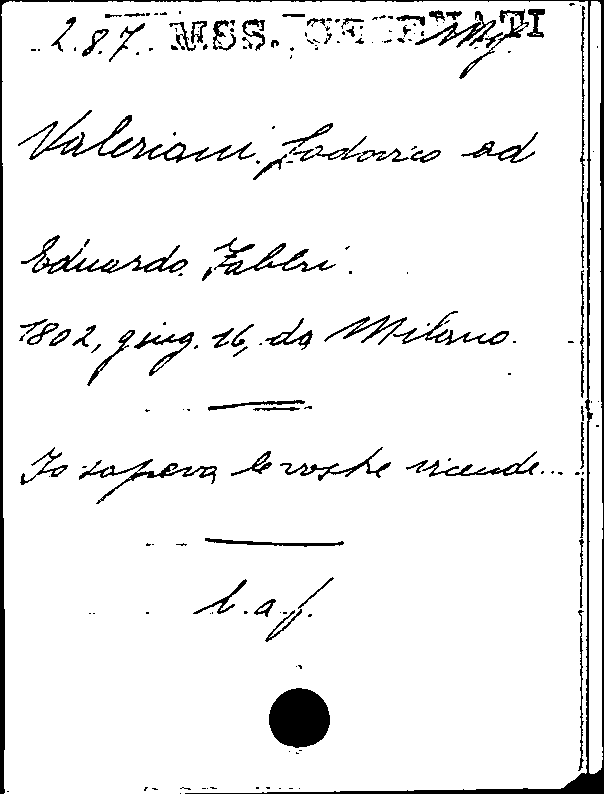 2.8.7. MSS. CESENATI
Valeriani Lodovico ad
Eduardo Fabbri.
1802, giug. 16, da Milano.
Io sapeva le vostre vicende...
l. a. f.